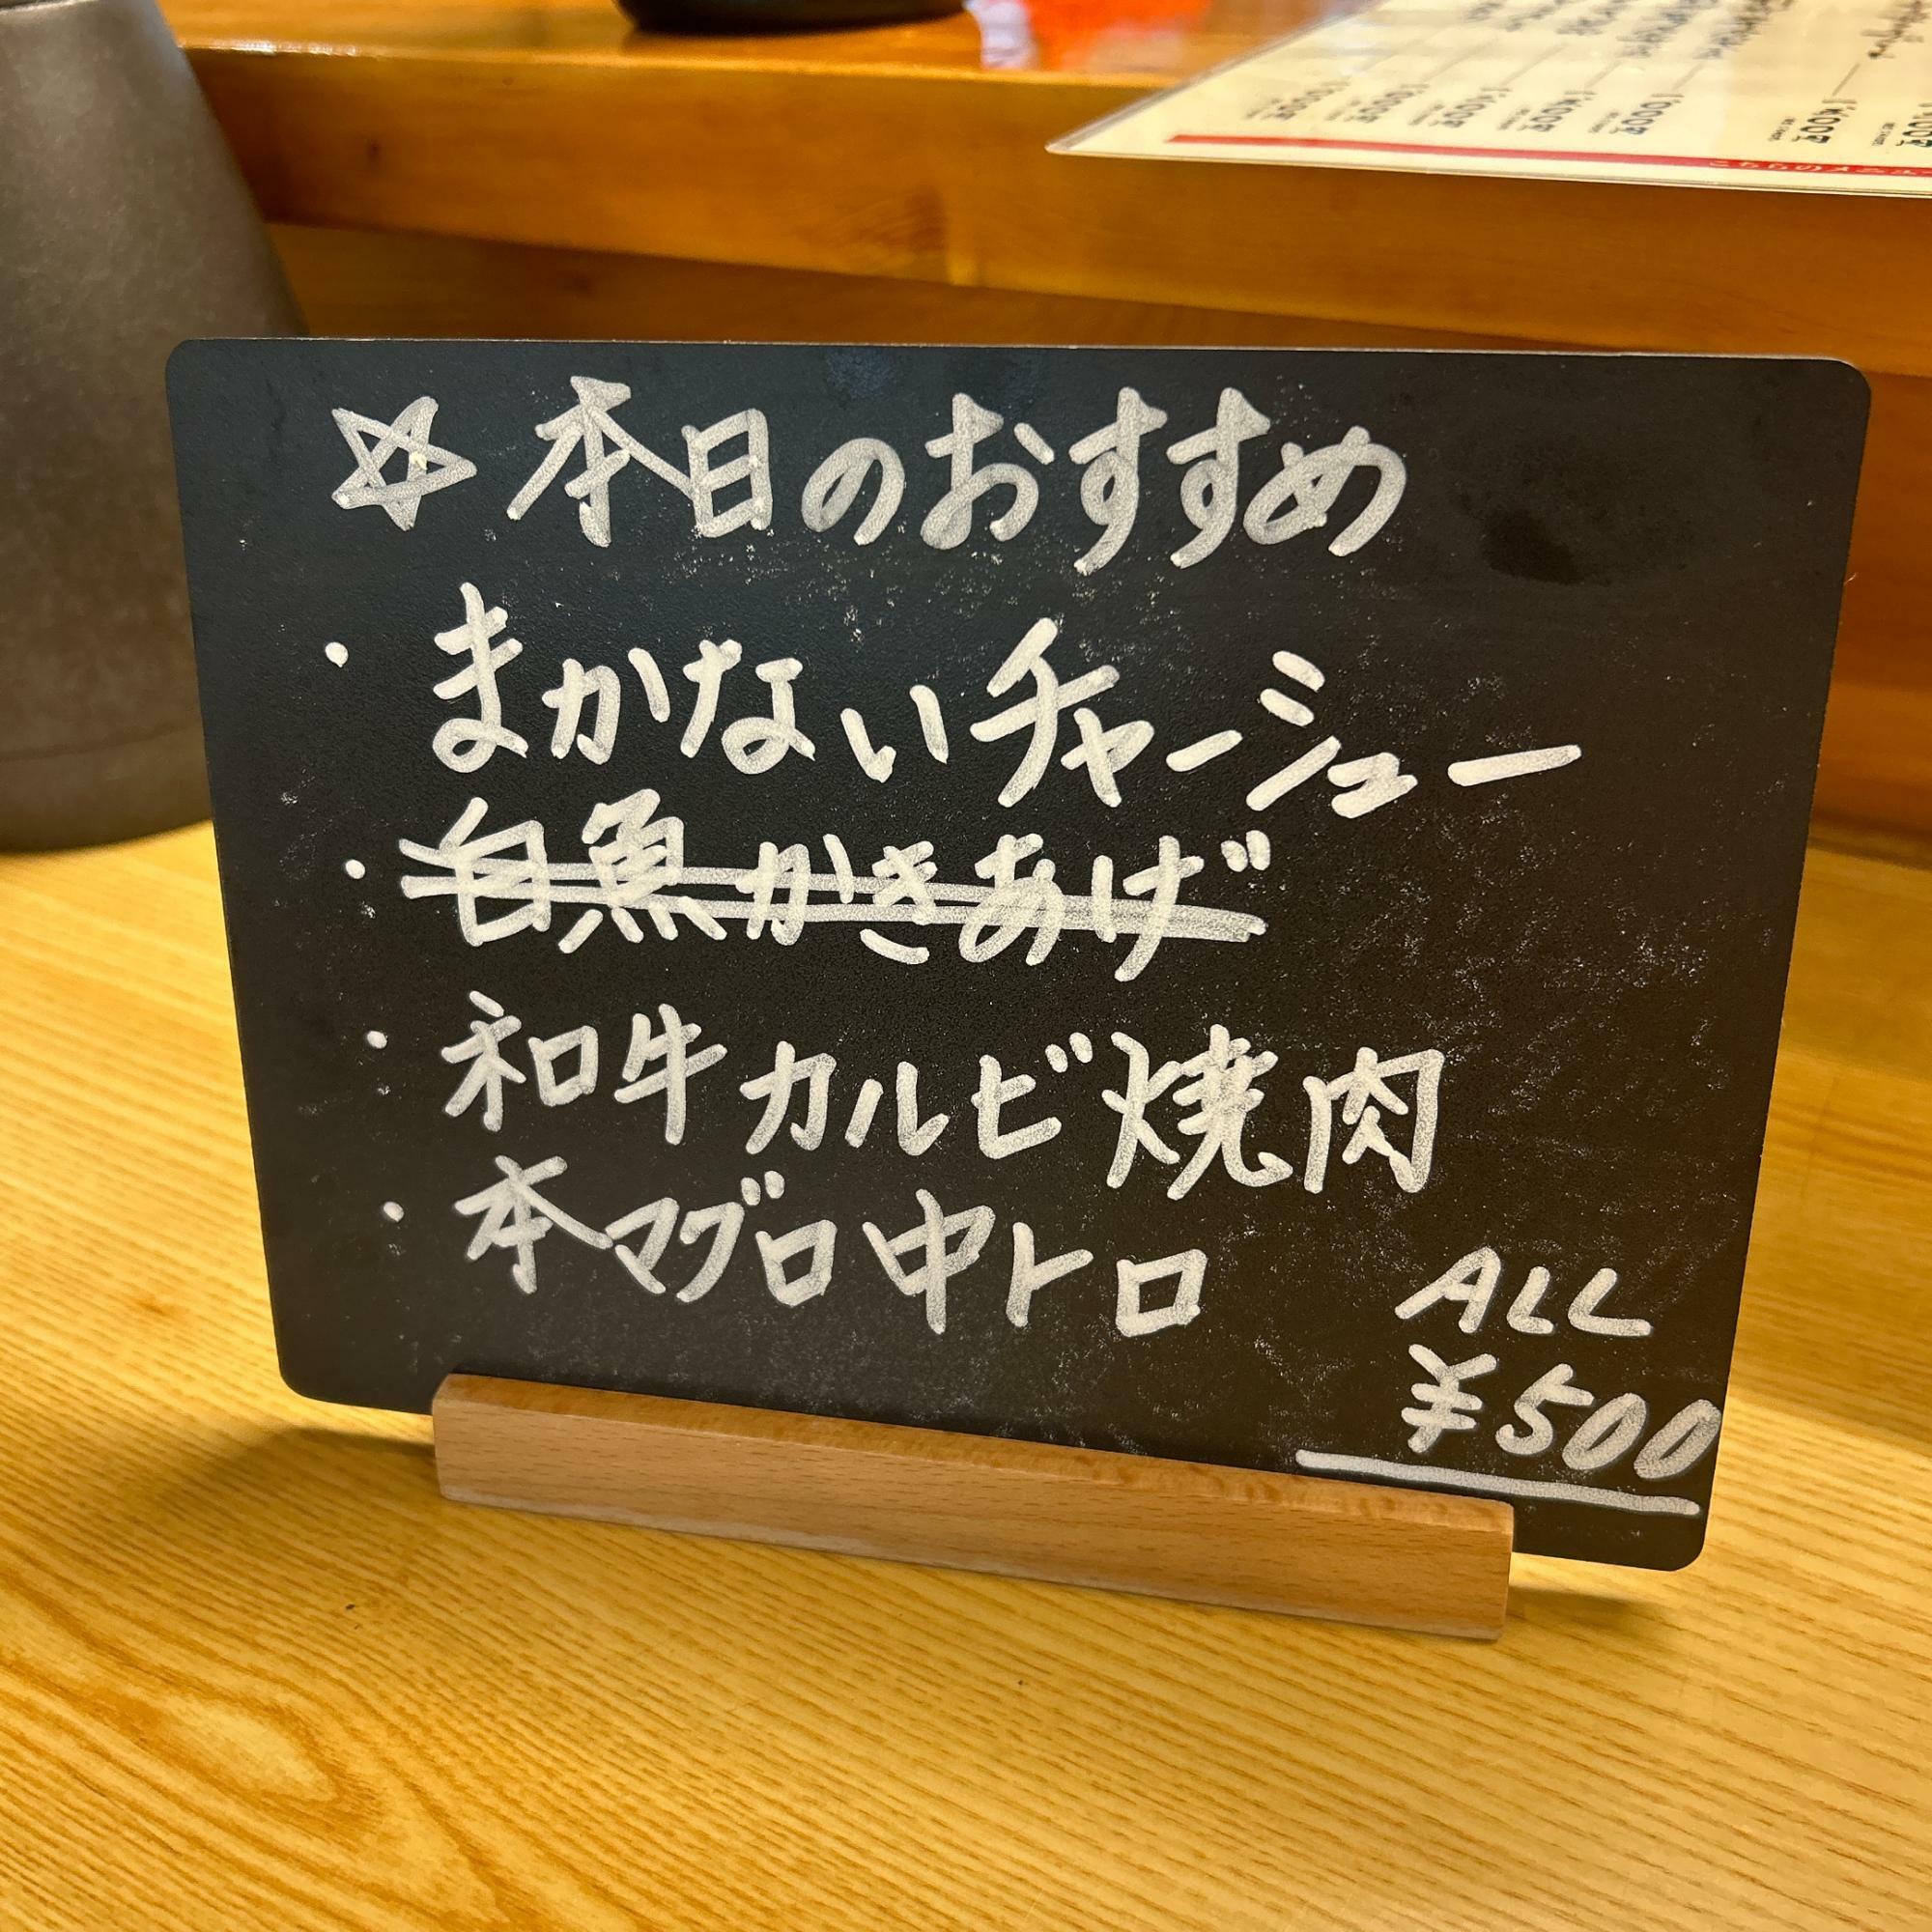 ☆ 本日のおすすめ
・ まかないチャーシュー
・ 白魚かきあげ
・ 和牛カルビ焼肉
・ 本マグロ中トロ
ALL
¥500